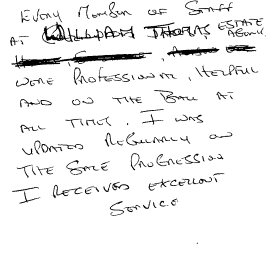 Every Member of Staff
at William Thomas Estate Agency
were Professional, Helpful
and on the Ball at
all times. I was
updated regularly on
the Sale Progression
I received excellent
Service